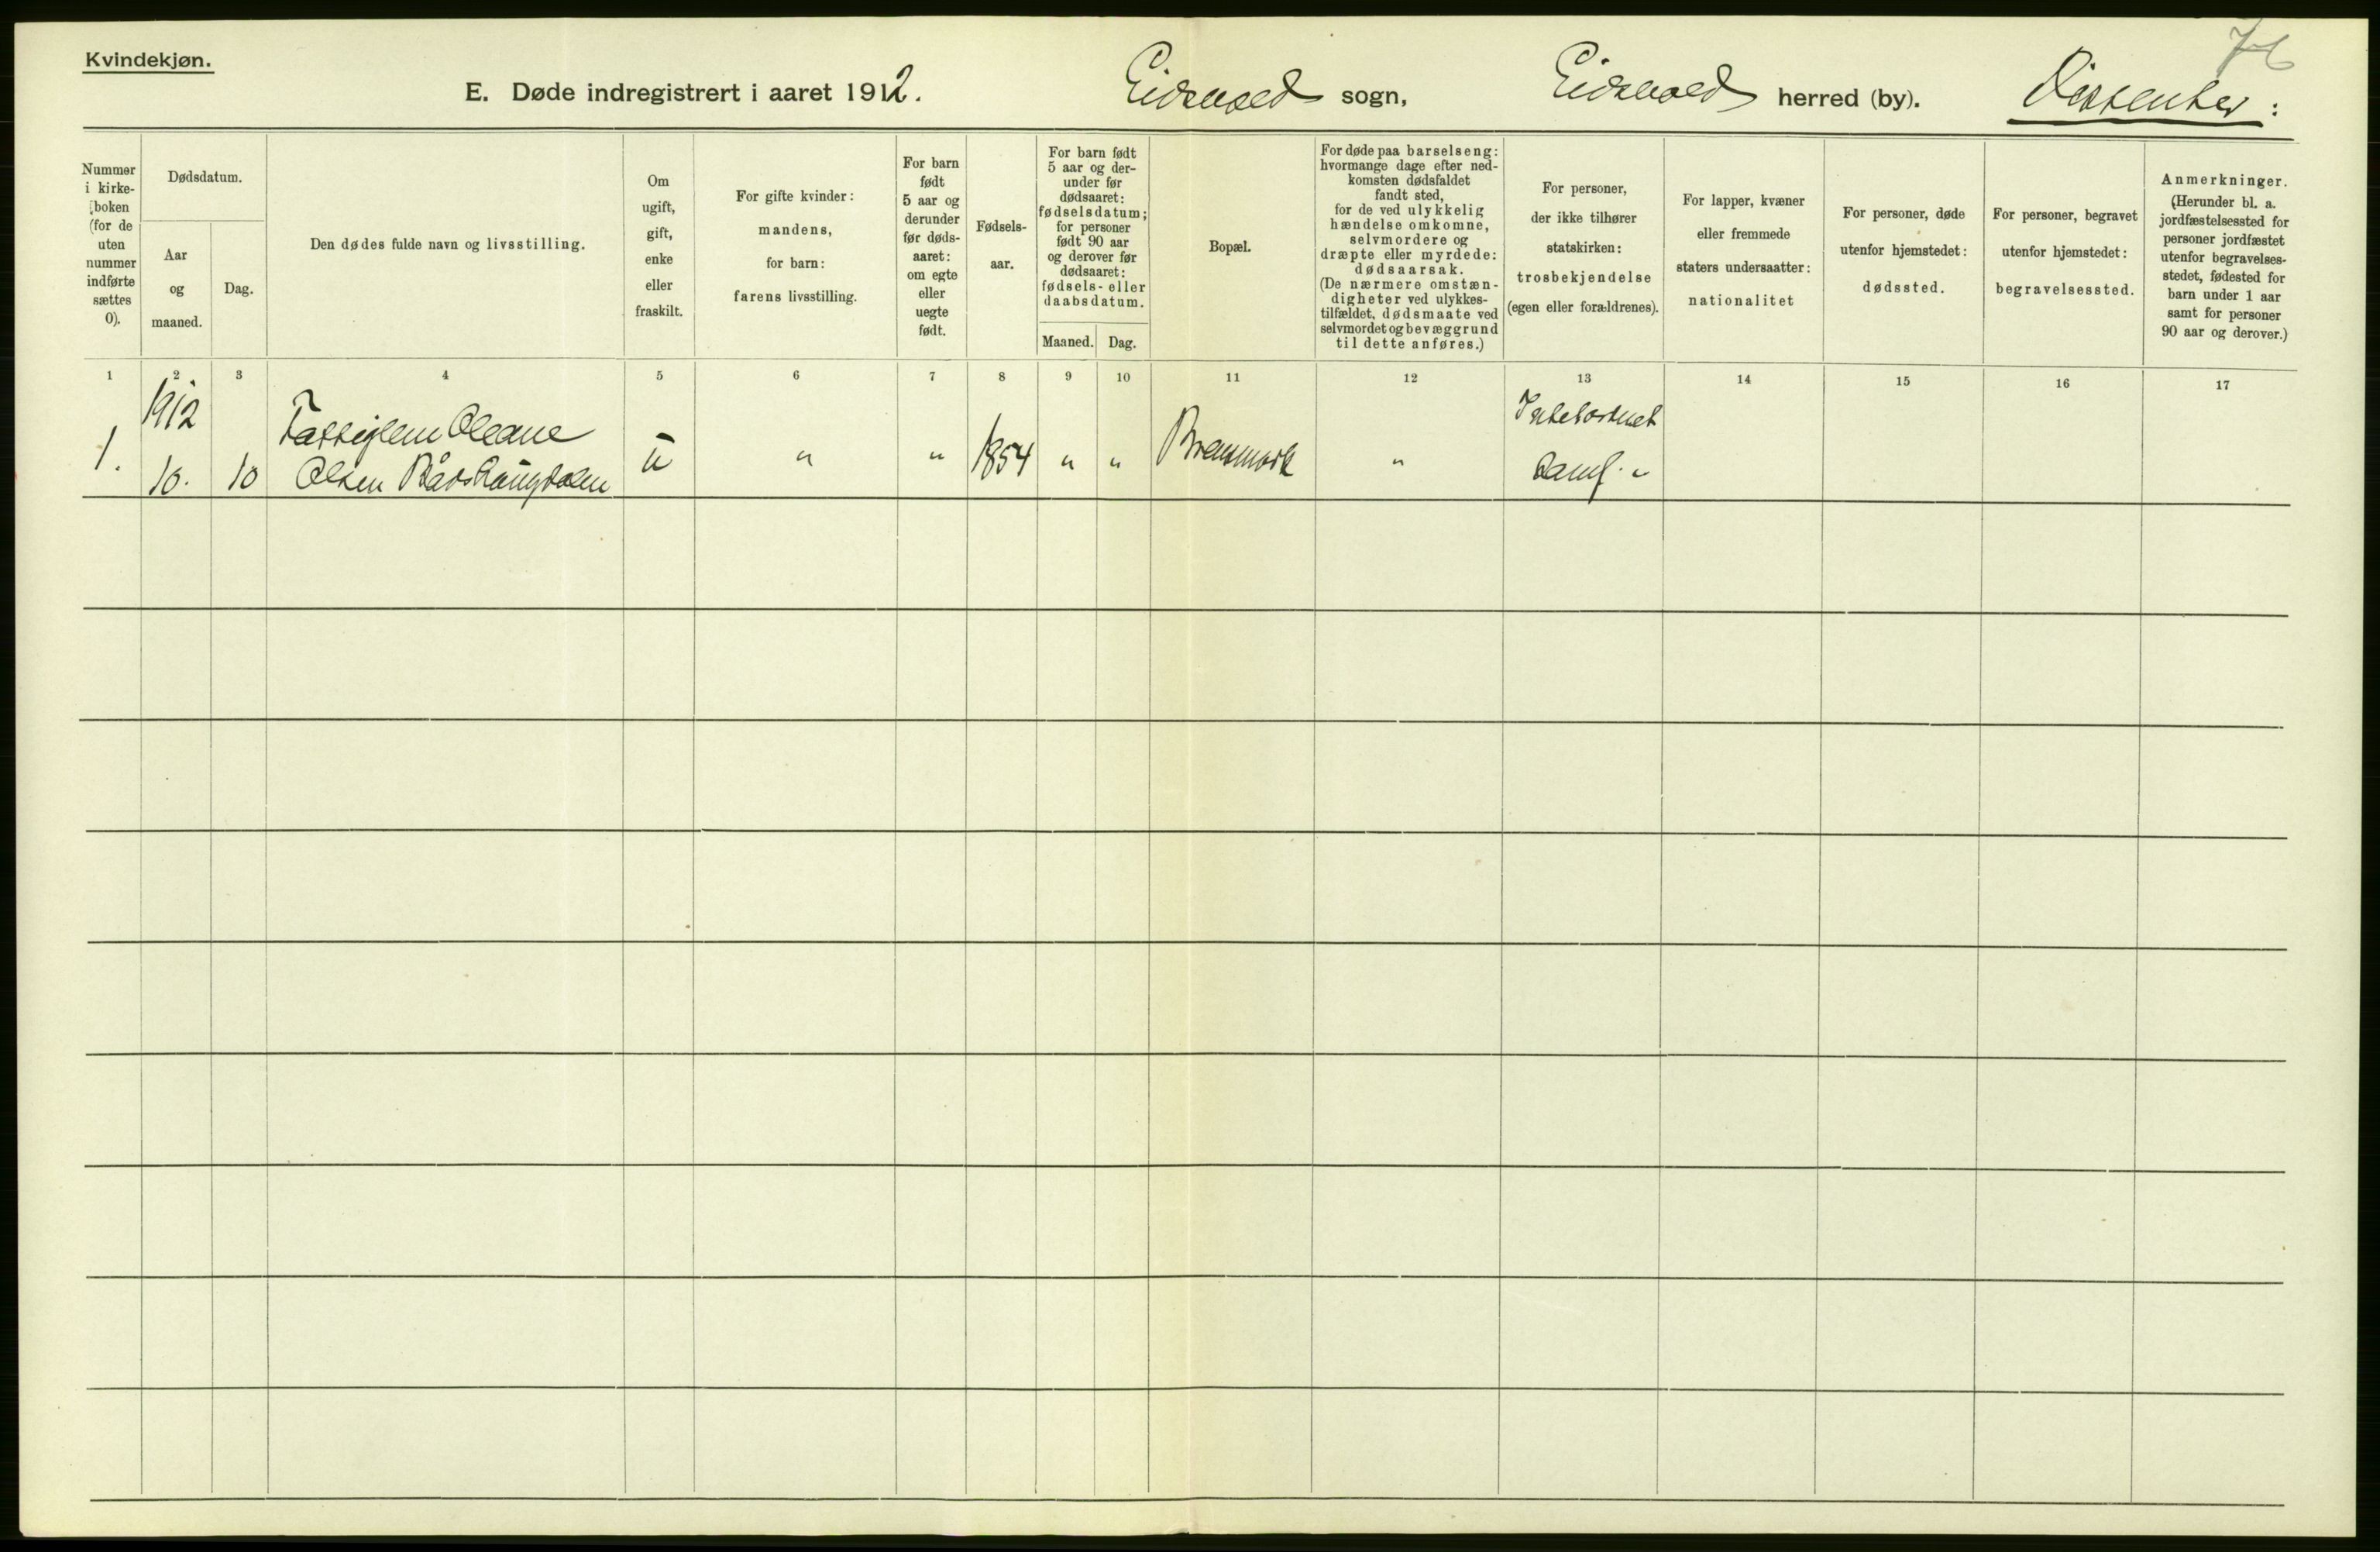 76
Kvindekjøn.
E. Døde indregistrert i aaret 1912. Eidsvold sogn, Eidsvold herred (by). Dissenter:
Nummer i kirke- boken (for de uten nummer indførte sættes 0).
Dødsdatum.
Aar og maaned.
Dag.
Den dødes fulde navn og livsstilling.
Om ugift, gift, enke eller fraskilt.
For gifte kvinder: mandens, for barn: farens livsstilling.
For barn født 5 aar og derunder før døds- aaret: om egte eller uegte født.
Fødsels- aar.
For barn født 5 aar og der- under før dødsaaret: fødselsdatum; for personer født 90 aar og derover før dødsaaret: fødsels- eller daabsdatum.
Maaned.
Dag.
Bopæl.
For døde paa barselseng: hvormange dage efter ned- komsten dødsfaldet fandt sted, for de ved ulykkelig hændelse omkomne, selvmordere og dræpte eller myrdede: dødsaarsak. (De nærmere omstæn- digheter ved ulykkes- tilfældet, dødsmaate ved selvmordet og bevæggrund til dette anføres.)
For personer, der ikke tilhører statskirken: trosbekjendelse (egen eller forældrenes).
For lapper, kvæner eller fremmede staters undersaatter: nationalitet
For personer, døde utenfor hjemstedet: dødssted.
For personer, begravet utenfor hjemstedet: begravelsessted.
Anmerkninger. (Herunder bl. a. jordfæstelsessted for personer jordfæstet utenfor begravelses- stedet, fødested for barn under 1 aar samt for personer 90 aar og derover.)
1 2 3 4 5 6 7 8 9 10 11 12 13 14 15 16 17
1912
Oleane
1. 10. 10 Olsen
u " " 1854 " " "